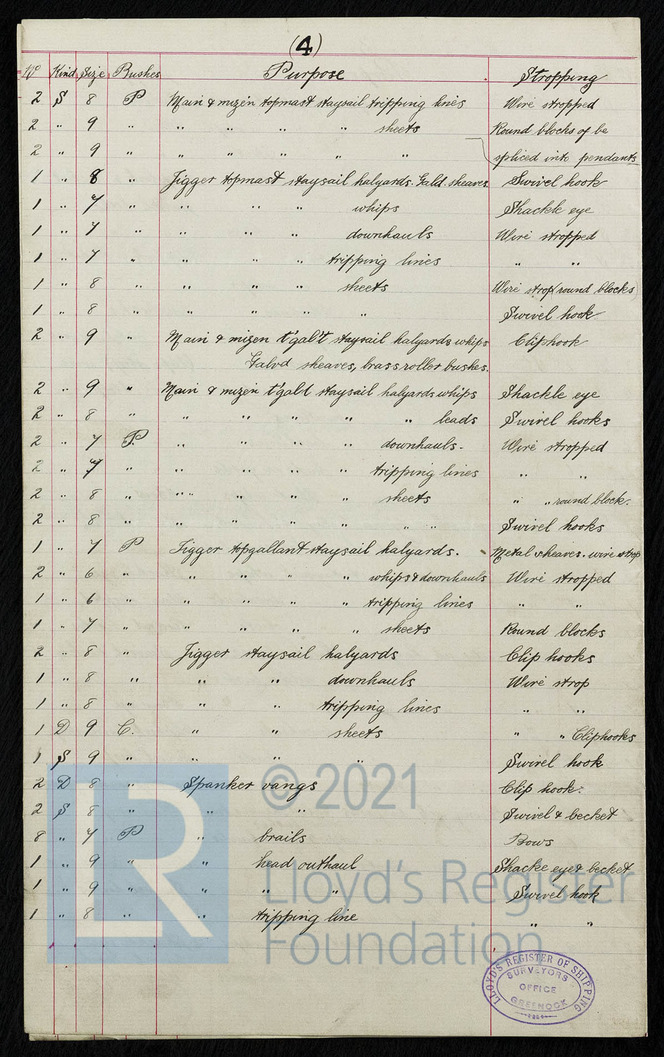 (4)
No Kind Size Bushes Purpose Stropping
2 S 8 P Main & mizen topmast staysail tripping lines Wire stropped
2 " 9 " " " " " sheets Round blocks of be
2 " 9 " " " " " " spliced into pendants
1 " 8 " Jigger topmast staysail halyards. Gald. sheaves Swivel hook
1 " 7 " " " " whips Shackle eye
1 " 7 " " " " downhauls Wire stropped
1 " 7 " " " " tripping lines " "
1 " 8 " " " " sheets Wire strop/round blocks
1 " 8 " " " " " Swivel hook
2 " 9 " Main & mizen t'gal't staysail halyards whips Cliphook
Galvd sheaves, brass roller bushes.
2 " 9 " Main & mizen t'galt staysail halyards whips Shackle eye
2 " 8 " " " " " " leads Swivel hooks
2 " 7 P. " " " " downhauls. Wire stropped
2 " 7 " " " " " tripping lines " "
2 " 8 " " " " " sheets " " round block.
2 " 8 " " " " " " " Swivel hooks
1 " 7 P Jigger topgallant staysail halyards. Metal sheaves. wire strop
2 " 6 " " " " " whips & downhauls Wire stropped
1 " 6 " " " " " tripping lines " "
1 " 7 " " " " " sheets Round blocks
2 " 8 " Jigger staysail halyards Clip hooks
1 " 8 " " " downhauls Wire strop
1 " 8 " " " tripping lines " "
1 D 9 C. " " sheets " " Cliphooks
1 S 9 " " " " Swivel hook
2 D 8 " Spanker vangs Clip hook.
2 S 8 " " " Swivel & becket
8 " 7 P " brails Bows
1 " 9 " " head outhaul Shacke eye & becket
1 " 9 " " " " Swivel hook
1 " 8 " " tripping line " "
LR
© 2021
Lloyd's Register
Foundation
LLOYD'S REGISTER OF SHIPPING
SURVEYORS
OFFICE
GREENOCK